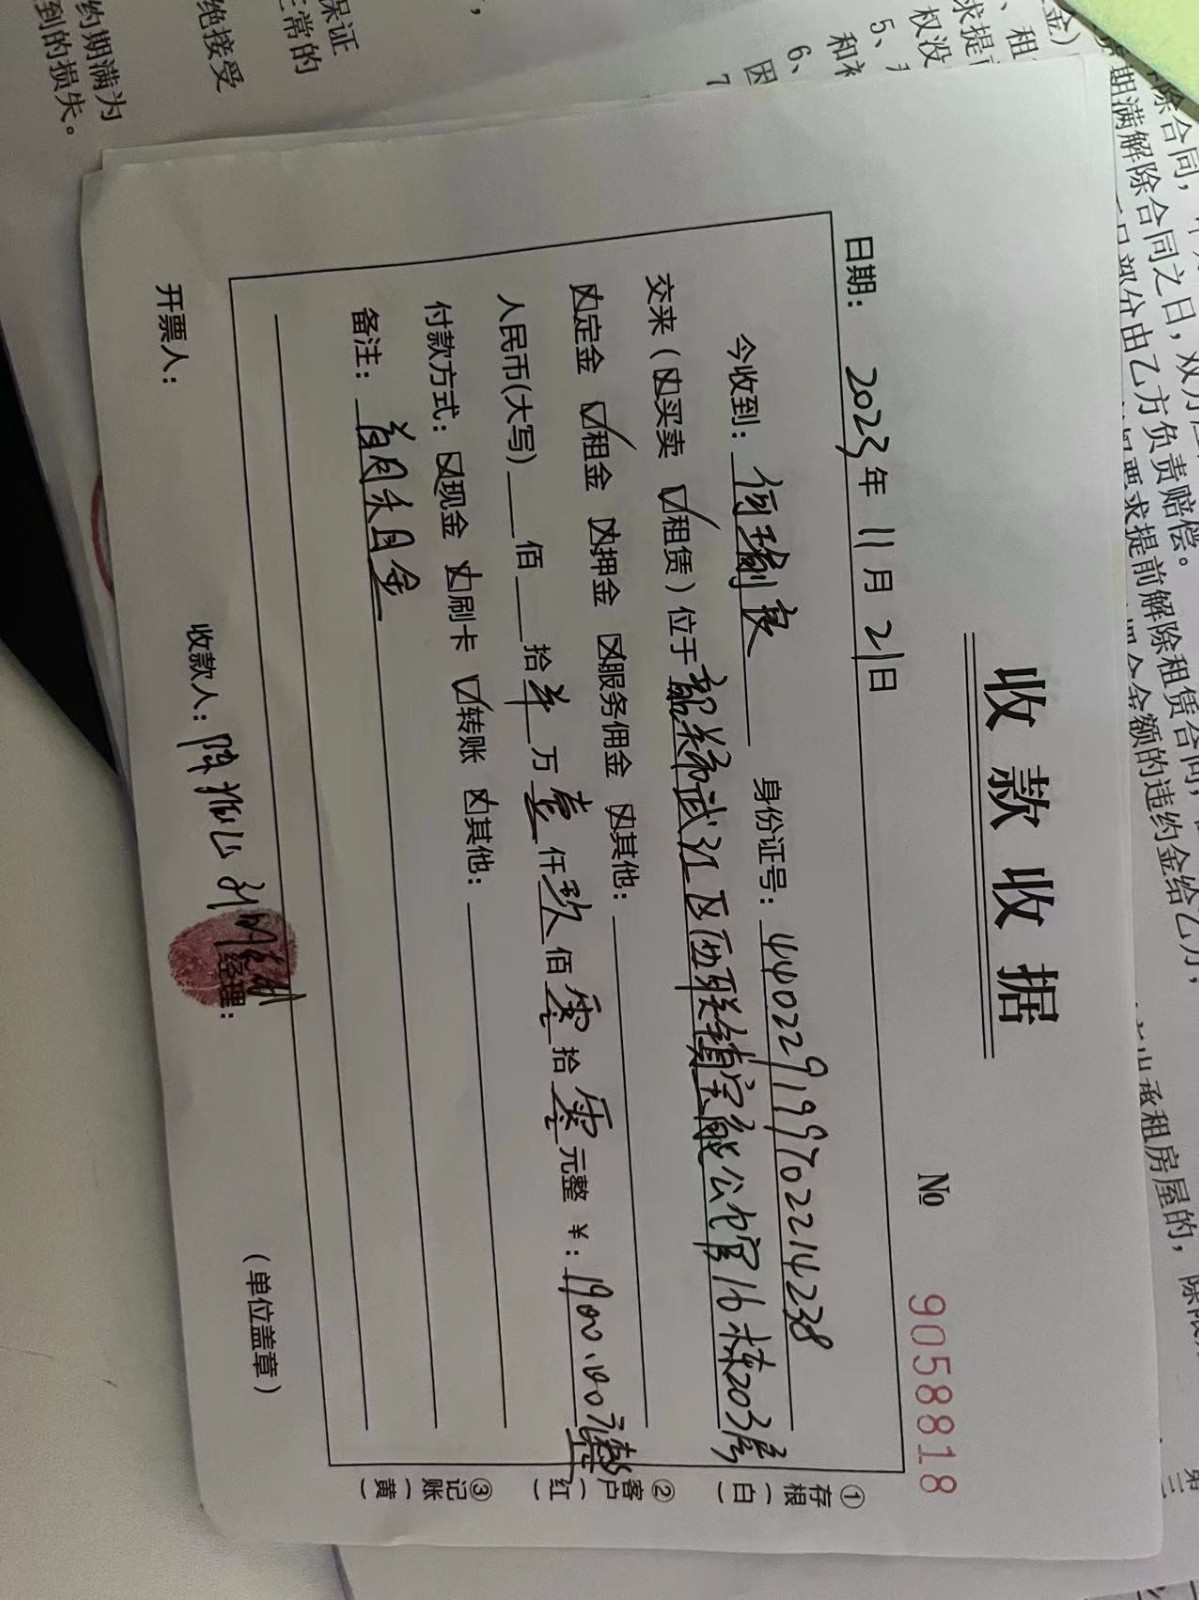 收款收据
№ 9058818
日期： 2023年 11月 21日
今收到： 何瑜良 身份证号： 440229199702214238
交来（☒买卖 ☑租赁）位于韶关市武江区西联镇宝能公馆16栋203房
☒定金 ☑租金 ☒押金 ☒服务佣金 ☒其他：
人民币(大写) 佰 拾 万 壹 仟 玖 佰 零 拾 零 元整 ¥：1900.00元整
付款方式：☒现金 ☒刷卡 ☑转账 ☒其他：
备注： 首月租金
开票人： 收款人：陈 经理：
（单位盖章）
①存根（白）
②客户（红）
③记账（黄）
保证
正常的
绝接受
约期满为
到的损失。
5、
6、
7
和
因
权没
求提
租
金）
除合同，
期满解除合同之日，双方
部分由乙方负责赔偿。
要求提前解除租赁合同，
金额的违约金给乙方，
出承租房屋的，
第三